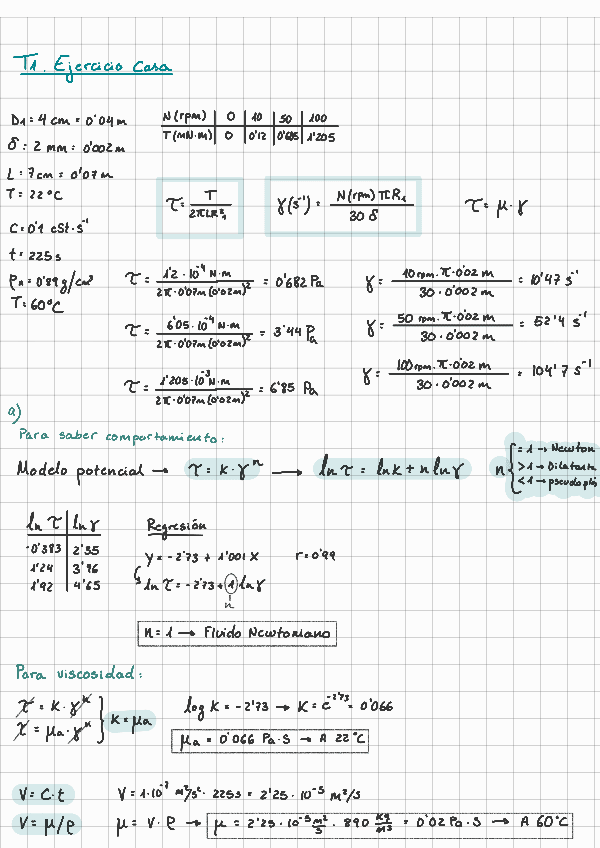 T1. Ejercicio Casa
D1 = 4 cm = 0'04 m
N (rpm) | 0 | 10 | 50 | 100
T (mN·m) | 0 | 0'12 | 0'605 | 1'205
δ = 2 mm = 0'002 m
L = 7 cm = 0'07 m
T = 22 ºC
τ = T / 2πLR²₁
γ (s⁻¹) = N (rpm) π R₁ / 30 δ
τ = μ · γ
C = 0'1 cSt·s⁻¹
t = 225 s
ρA = 0'89 g/cm³
T = 60 ºC
τ = 1'2 · 10⁻⁴ N·m / 2π·0'07m (0'02m)² = 0'682 Pa
γ = 10 rpm · π · 0'02 m / 30 · 0'002 m = 10'47 s⁻¹
τ = 6'05 · 10⁻⁴ N·m / 2π·0'07m (0'02m)² = 3'44 Pa
γ = 50 rpm · π · 0'02 m / 30 · 0'002 m = 52'4 s⁻¹
τ = 1'205 · 10⁻³ N·m / 2π·0'07m (0'02m)² = 6'85 Pa
γ = 100 rpm · π · 0'02 m / 30 · 0'002 m = 104'7 s⁻¹
a)
Para saber comportamiento:
Modelo potencial → τ = k · γⁿ → ln τ = ln k + n ln γ
n { = 1 → Newton
> 1 → Dilatante
< 1 → pseudoplás
ln τ | ln γ
-0'383 | 2'35
1'24 | 3'96
1'92 | 4'65
Regresión
y = -2'73 + 1'001 x r = 0'99
ln τ = -2'73 + 1 ln γ
n
n = 1 → Fluido Newtoniano
Para viscosidad:
τ = k · γⁿ
τ = μa · γⁿ } k = μa
log K = -2'73 → K = e⁻²'⁷³ = 0'066
μa = 0'066 Pa·s → A 22 ºC
V = C · t V = 1·10⁻⁷ m²/s² · 225s = 2'25 · 10⁻⁵ m²/s
V = μ/ρ μ = V · ρ → μ = 2'25 · 10⁻⁵ m²/s · 890 kg/m³ = 0'02 Pa·s → A 60 ºC